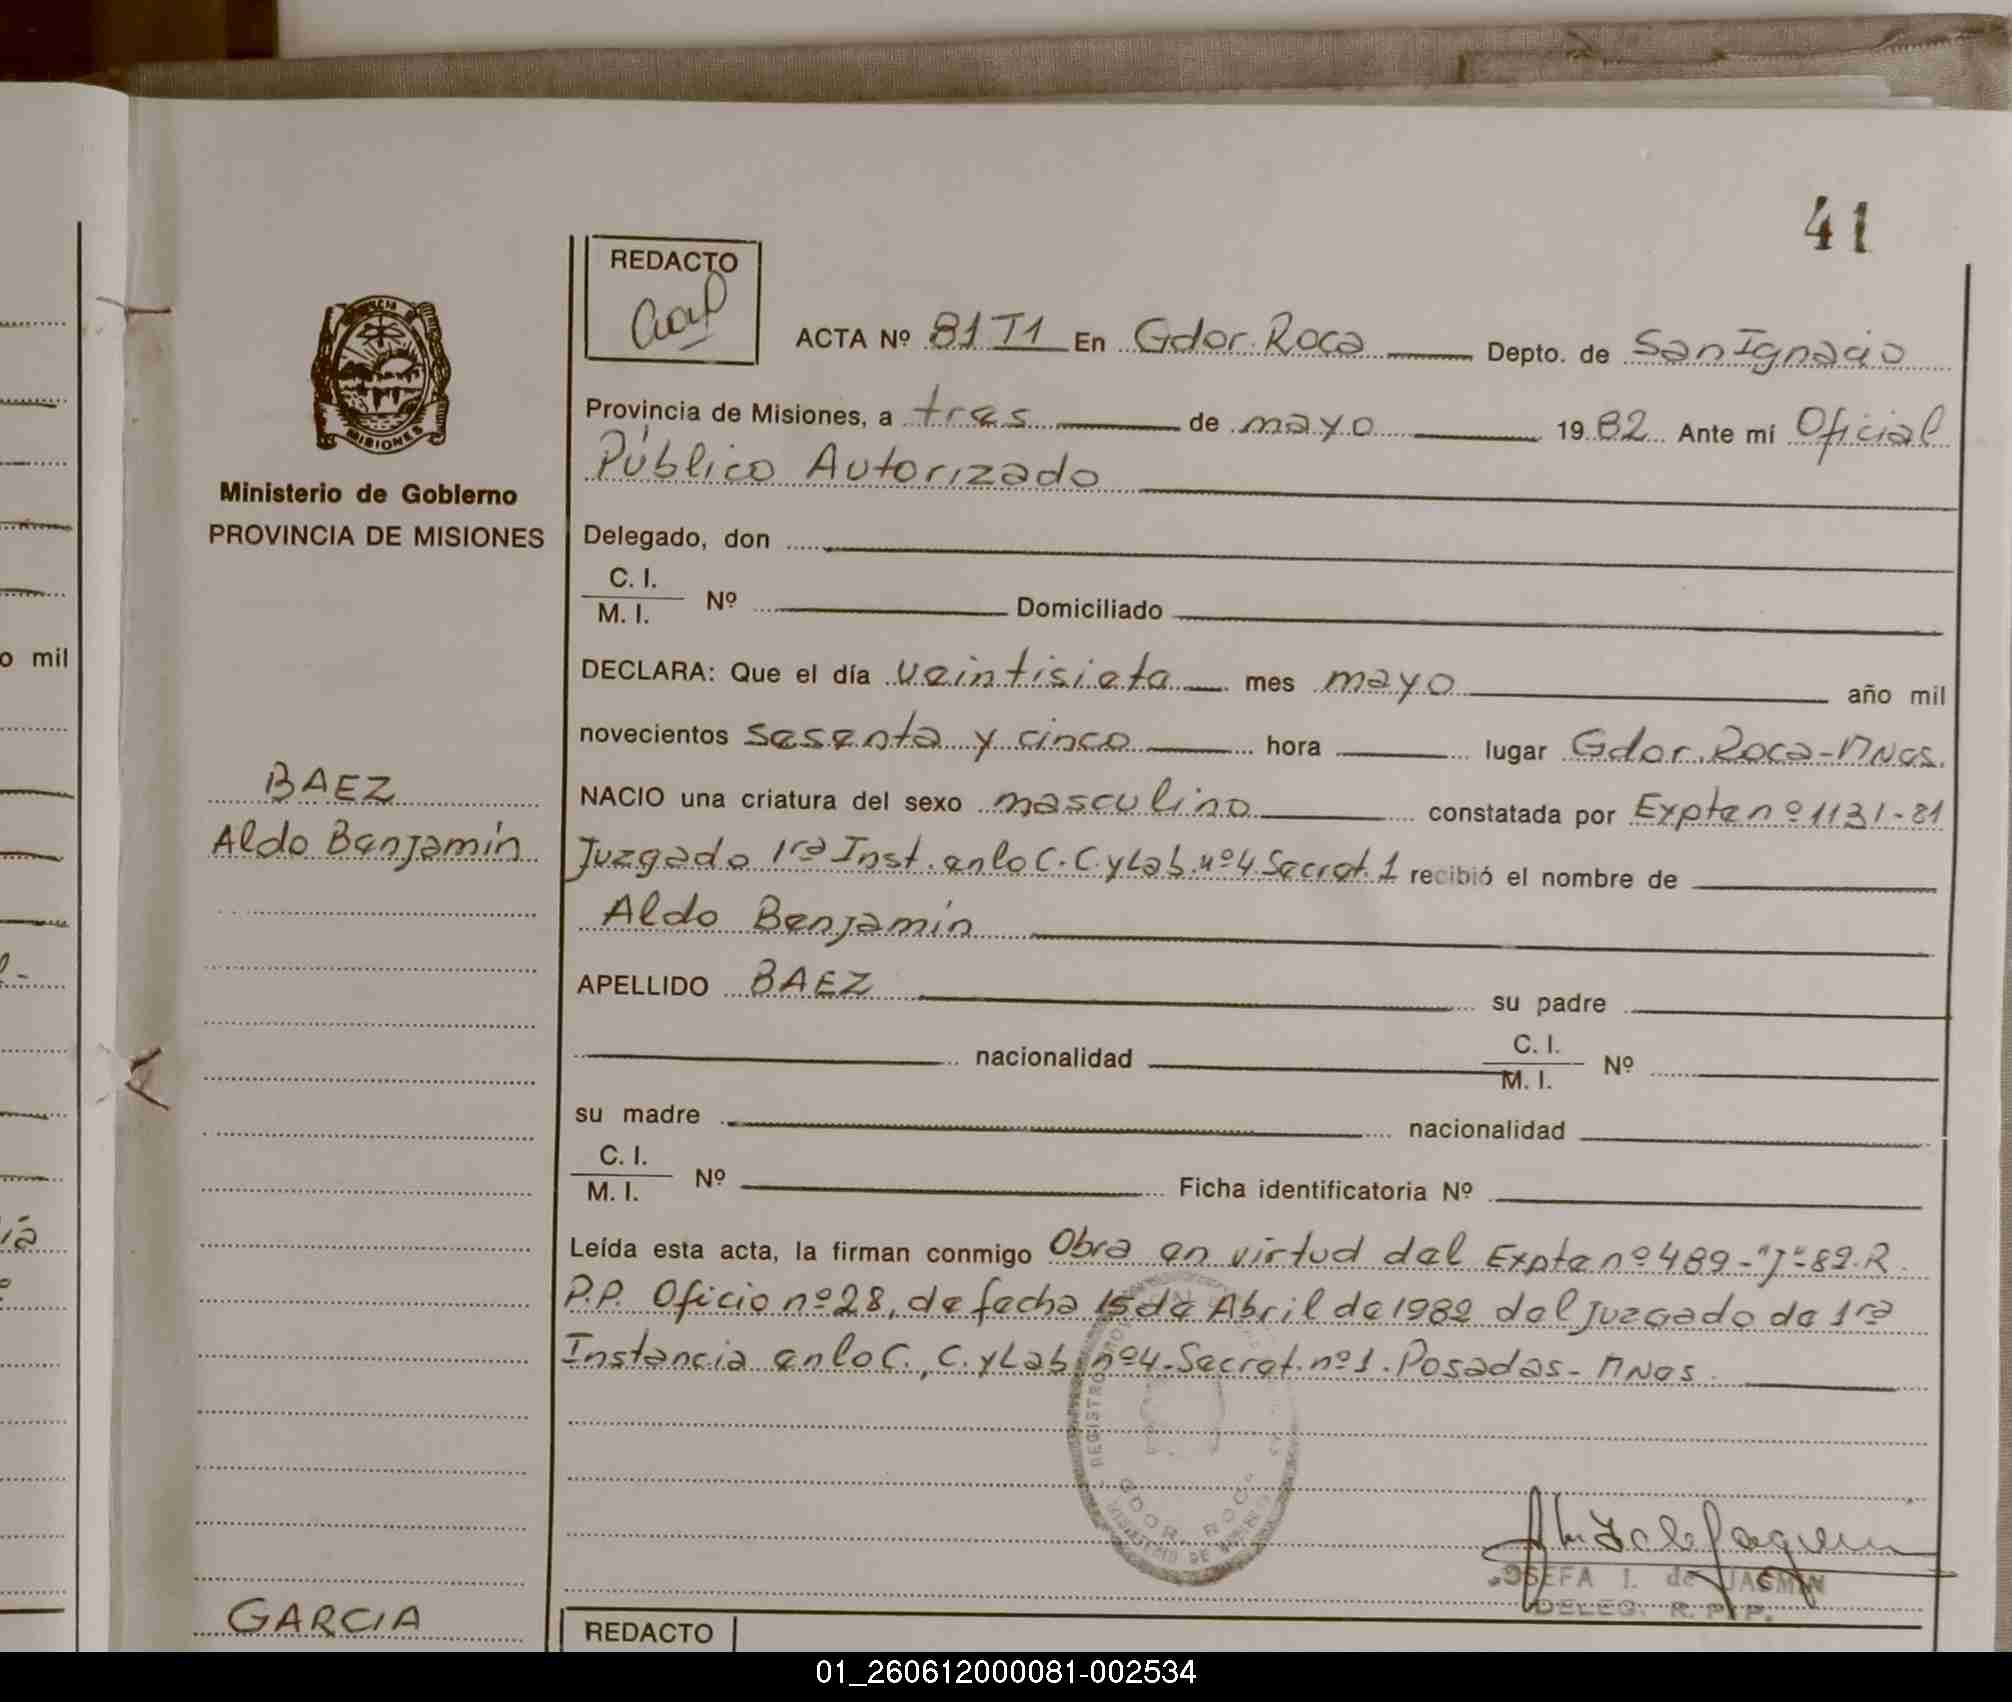 41
REDACTO
ACTA Nº 81 T1 En Gdor. Roca Depto. de San Ignacio
Provincia de Misiones, a tres de mayo 1982 Ante mí Oficial
Público Autorizado
Ministerio de Gobierno
PROVINCIA DE MISIONES
Delegado, don
C. I.
M. I.
Nº Domiciliado
DECLARA: Que el día veintisiete mes mayo año mil
novecientos sesenta y cinco hora lugar Gdor. Roca-Mnes.
BAEZ
NACIO una criatura del sexo masculino constatada por Expte nº 1131-81
Aldo Benjamín
Juzgado 1ra Inst. en lo C. C. y Lab. nº 4 Secret. 1 recibió el nombre de
Aldo Benjamín
APELLIDO BAEZ su padre
nacionalidad
C. I.
M. I.
Nº
su madre nacionalidad
C. I.
M. I.
Nº Ficha identificatoria Nº
Leída esta acta, la firman conmigo Obra en virtud del Expte nº 489-"J"-82. R.
P.P. Oficio nº 28, de fecha 15 de Abril de 1982 del Juzgado de 1ra
Instancia en lo C., C. y Lab. nº 4. Secret. nº 1. Posadas- Mnes.
JOSEFA I. de JASMIN
DELEG. R. P. P.
GARCIA
REDACTO
o mil
MISIONES
01_260612000081-002534